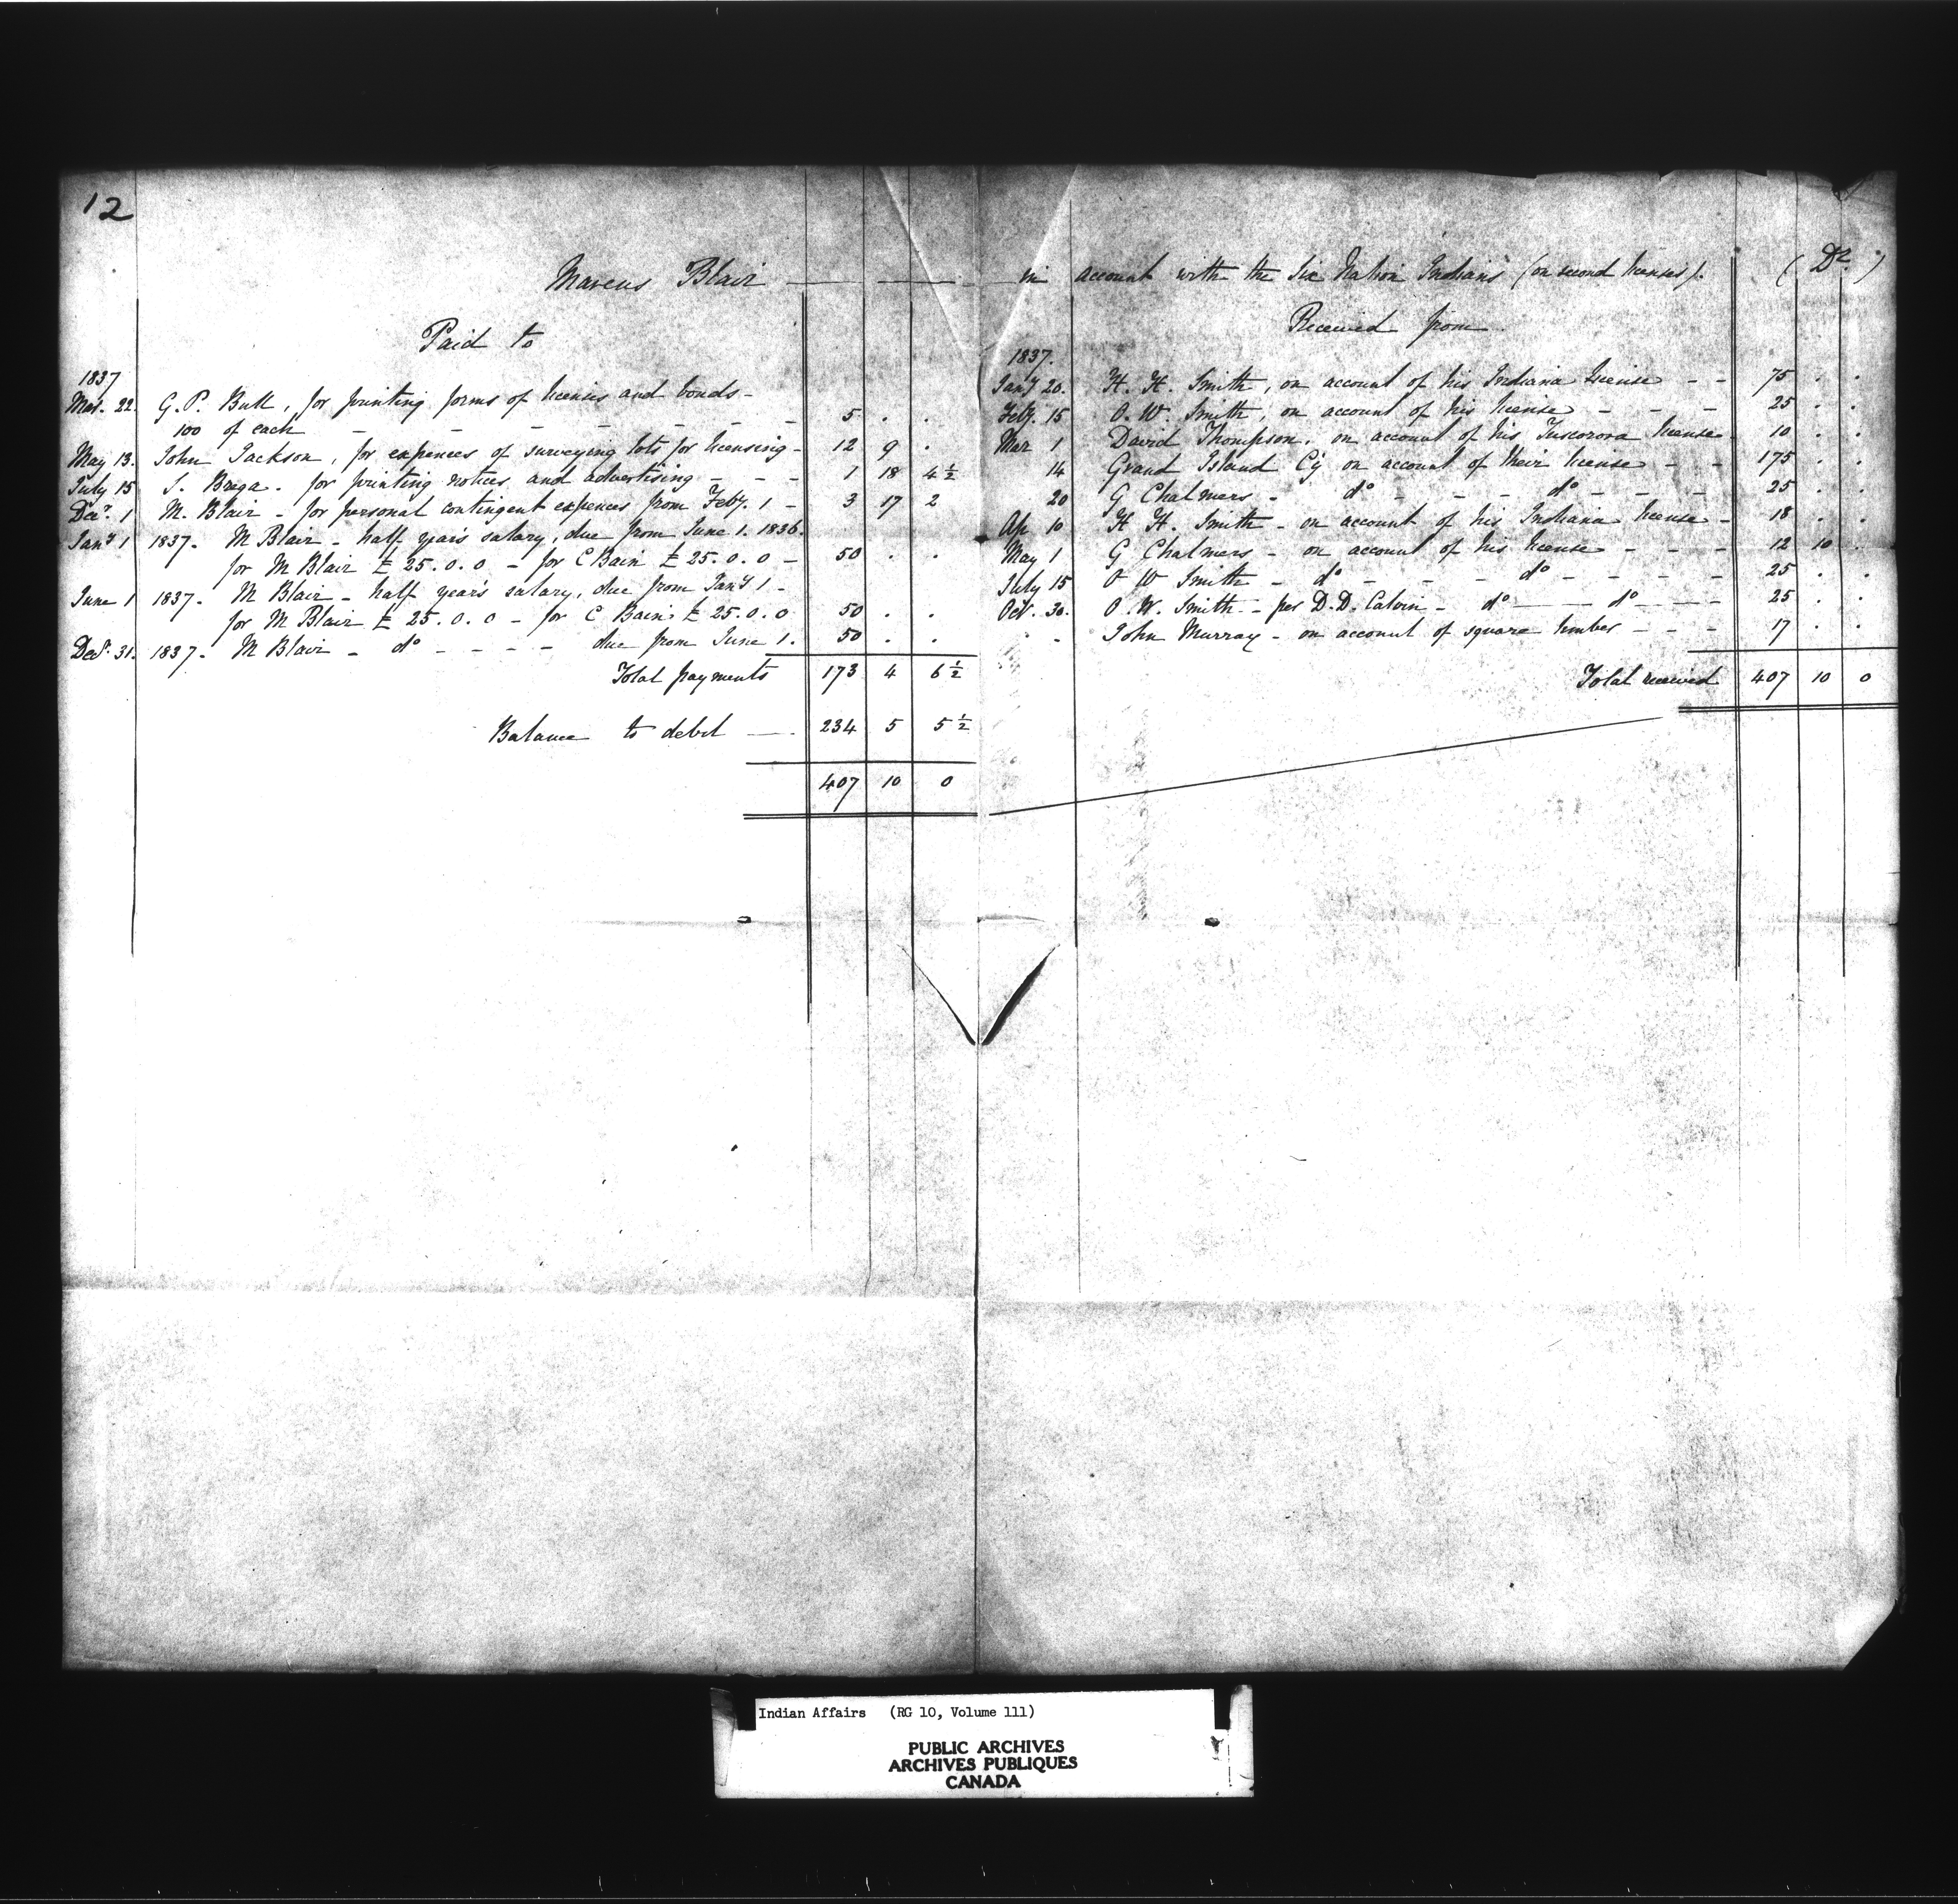 12
Marcus Blair — in account with the Six Nation Indians (on second licenses). (Dr.)
Paid to
1837
Mar. 22. G. P. Bull, for printing forms of licenses and bonds -
100 of each - - - - - - 5 . .
May 13. John Jackson, for expences of surveying lots for licensing - 12 9 .
July 15 S. Brega. for printing notices and advertising - - - 1 18 4 1/2
Decr. 1 M. Blair - for personal contingent expences from Feby. 1 - 3 17 2
Jany 1 1837. M Blair - half year's salary, due from June 1. 1836.
for M Blair £ 25.0.0 - for C Bain £ 25.0.0 - 50 . .
June 1 1837. M Blair - half year's salary, due from Jany 1 -
for M Blair £ 25.0.0 - for C Bain £ 25.0.0 50 . .
Decr. 31. 1837. M Blair - do - - - - due from June 1. 50 . .
Total payments 173 4 6 1/2
Balance to debit — 234 5 5 1/2
407 10 0
Received from
1837.
Jany 20. H. H. Smith, on account of his Indiana license - - 75 . .
Feby. 15 O. W. Smith, on account of his license - - - 25 . .
Mar 1 David Thompson, on account of his Tuscorora license 10 . .
14 Grand Island Cy on account of their license - - 175 . .
20 G Chalmers - do - - - do - - - - 25 . .
Ap 10 H H. Smith - on account of his Indiana license - 18 . .
May 1 G Chalmers - on account of his license - - - 12 10 .
July 15 O W Smith - do - - - - do - - - - - 25 . .
Oct. 30. O. W. Smith - per D. D. Calvin - do — do — - - 25 . .
- John Murray - on account of square timber - - - 17 . .
Total received 407 10 0
Indian Affairs (RG 10, Volume 111)
PUBLIC ARCHIVES
ARCHIVES PUBLIQUES
CANADA